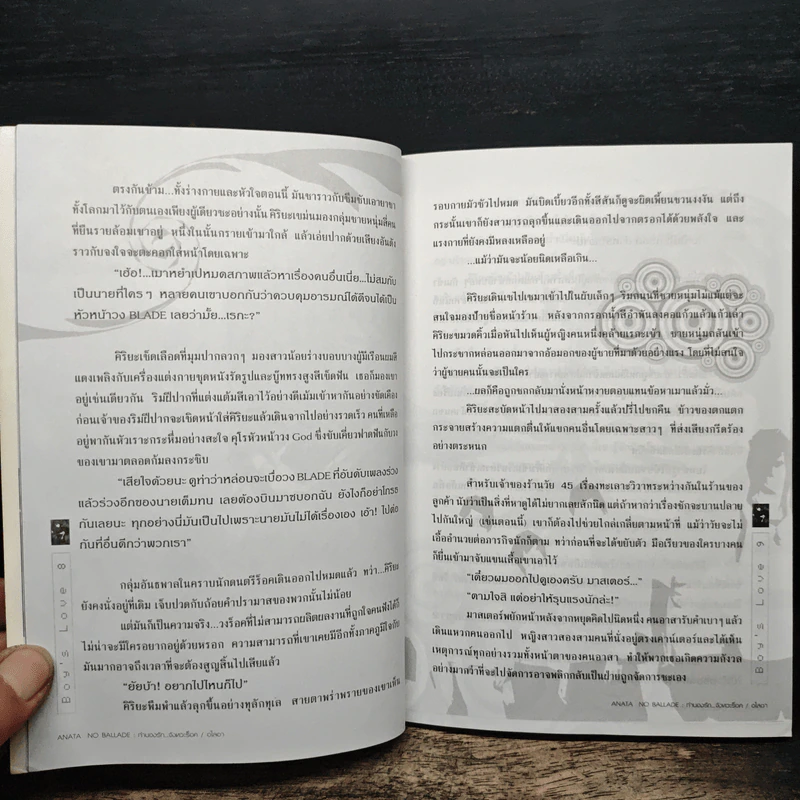 ตรงกันข้าม...ทั้งร่างกายและหัวใจตอนนี้ มันชาราวกับซึมซับเอายาชา
ทั้งโลกมาไว้กับตนเองเพียงผู้เดียวซะอย่างนั้น คิริยะเขม่นมองกลุ่มชายหนุ่มสี่คน
ที่ยืนรายล้อมเขาอยู่ หนึ่งในนั้นกรายเข้ามาใกล้ แล้วเอ่ยปากด้วยเสียงอันดัง
ราวกับจงใจจะตะคอกใส่หน้าโดยเฉพาะ
“เฮ้อ!...เมาหยำเปหมดสภาพแล้วหาเรื่องคนอื่นเนี่ย...ไม่สมกับ
เป็นนายที่ใครๆ หลายคนเขาบอกกันว่าควบคุมอารมณ์ได้ดีจนได้เป็น
หัวหน้าวง BLADE เลยว่ามั้ย...เรกะ?”
คิริยะเช็ดเลือดที่มุมปากลวกๆ มองสาวน้อยร่างบอบบางผู้มีเรือนผมสี
แดงเพลิงกับเครื่องแต่งกายชุดหนังรัดรูปและบู๊ททรงสูงสีเข็ดฟัน เธอก็มองเขา
อยู่เช่นเดียวกัน ริมฝีปากที่แต่งแต้มสีเอาไว้อย่างดีเม้มเข้าหากันอย่างขัดเคือง
ก่อนเจ้าของริมฝีปากจะเชิดหน้าใส่คิริยะแล้วเดินจากไปอย่างรวดเร็ว คนที่เหลือ
อยู่พากันหัวเราะกระหึ่มอย่างสะใจ คุโรหัวหน้าวง God ซึ่งขับเคี่ยวฟาดฟันกับวง
ของเขามาตลอดก้มลงกระซิบ
“เสียใจด้วยนะ ดูท่าว่าหล่อนจะเบื่อวง BLADE ที่อันดับเพลงร่วง
แล้วร่วงอีกของนายเต็มทน เลยต้องบินมาซบอกฉัน ยังไงก็อย่าโกรธ
กันเลยนะ ทุกอย่างนี่มันเป็นไปเพราะนายมันไม่ได้เรื่องเอง เอ้า! ไปต่อ
กันที่อื่นดีกว่าพวกเรา”
กลุ่มอันธพาลในคราบนักดนตรีร็อคเดินออกไปหมดแล้ว ทว่า...คิริยะ
ยังคงนั่งอยู่ที่เดิม เจ็บปวดกับถ้อยคำปรามาสของพวกนั้นไม่น้อย
แต่มันก็เป็นความจริง...วงร็อคที่ไม่สามารถผลิตผลงานที่ถูกใจคนฟังได้ก็
ไม่น่าจะมีใครอยากอยู่ด้วยหรอก ความสามารถที่เขาเคยมีอีกทั้งภาคภูมิใจกับ
มันมากอาจถึงเวลาที่จะต้องสูญสิ้นไปเสียแล้ว
“ยัยบ้า! อยากไปไหนก็ไป”
คิริยะพึมพำแล้วลุกขึ้นอย่างทุลักทุเล สายตาพร่าพรายของเขาเห็น
Boy's Love 8
ANATA NO BALLADE : ทำนองรัก...รังแกะร็อค / อไลอา
รอบกายมัวซัวไปหมด มันบิดเบี้ยวอีกทั้งสีสันก็ดูจะผิดเพี้ยนชวนงงงัน แต่ถึง
กระนั้นเขาก็ยังสามารถลุกขึ้นและเดินออกไปจากตรอกได้ด้วยพลังใจ และ
แรงกายที่ยังคงมีหลงเหลืออยู่
...แม้ว่ามันจะน้อยนิดเหลือเกิน...
คิริยะเดินเซไปเซมาเข้าไปในผับเล็กๆ ริมถนนที่ชายหนุ่มไม่แม้แต่จะ
สนใจมองป้ายชื่อหน้าร้าน หลังจากกรอกน้ำสีอำพันลงคอแก้วแล้วแก้วเล่า
คิริยะขมวดคิ้วเมื่อหันไปเห็นผู้หญิงคนหนึ่งคล้ายเรกะเข้า ชายหนุ่มถลันเข้า
ไปกระชากหล่อนออกมาจากอ้อมอกของผู้ชายที่มาด้วยอย่างแรง โดยที่ไม่สนใจ
ว่าผู้ชายคนนั้นจะเป็นใคร
...ผลก็คือถูกชกกลับมานั่งหน้าหงายตอบแทนข้อหาเมาแล้วมั่ว...
คิริยะสะบัดหน้าไปมาสองสามครั้งแล้วปรี่ไปชกคืน ข้าวของตกแตก
กระจายสร้างความแตกตื่นให้แขกคนอื่นโดยเฉพาะสาวๆ ที่ส่งเสียงกรีดร้อง
อย่างตระหนก
สำหรับเจ้าของร้านวัย 45 เรื่องทะเลาะวิวาทระหว่างกันในร้านของ
ลูกค้า นับว่าเป็นสิ่งที่หาดูได้ไม่ยากเลยสักนิด แต่ถ้าหากว่าเรื่องชักจะบานปลาย
ไปกันใหญ่ (เช่นตอนนี้) เขาก็ต้องไปช่วยไกล่เกลี่ยตามหน้าที่ แม้ว่าวัยจะไม่
เอื้ออำนวยต่อภารกิจนักก็ตาม ทว่าก่อนที่จะได้ขยับตัว มือเรียวของใครบางคน
ก็ยื่นเข้ามาจับแขนเสื้อเขาเอาไว้
“เดี๋ยวผมออกไปดูเองครับ มาสเตอร์...”
“ตามใจสิ แต่อย่าให้รุนแรงนักล่ะ!”
มาสเตอร์พยักหน้าหลังจากหยุดคิดไปนิดหนึ่ง คนอาสารับคำเบาๆ แล้ว
เดินแหวกคนออกไป หญิงสาวสองสามคนที่นั่งอยู่ตรงเคาน์เตอร์และได้เห็น
เหตุการณ์ทุกอย่างรวมทั้งหน้าตาของคนอาสา ทำให้พวกเธอเกิดความกังวล
อย่างมากว่าที่จะไปจัดการอาจพลิกกลับเป็นฝ่ายถูกจัดการซะเอง
Boy's Love 9
ANATA NO BALLADE : ทำนองรัก...รังแกะร็อค / อไลอา